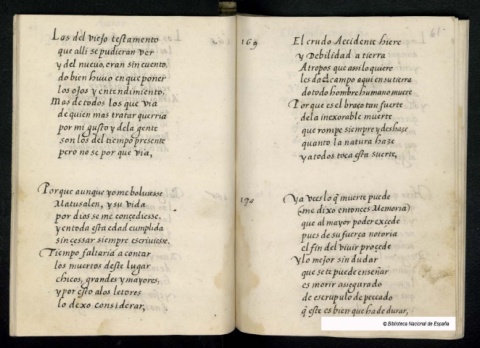 Los del viejo testamento
que alli se pudieran ver
y del nuevo, eran sin cuento,
do bien huvo en que poner
los ojos y entendimiento.
Mas de todos los que via
de quien mas tratar querria
por mi gusto y dela gente
son los del tiempo presente
pero no se por que via,
Porque aunque yo me bolviesse
Matusalen, y su vida
por dios me concediesse,
y en toda esta edad cumplida
sin cessar siempre escriviesse.
Tiempo faltaria a contar
los muertos deste lugar
chicos, grandes y mayores,
y por esto alos letores
lo dexo considerar,
169
El crudo Accidente hiere
y Debilidad a tierra
Atropos que assi lo quiere
les da el campo aqui en su tierra
do todo hombre humano muere
Porque es el braço tan fuerte
dela inexorable muerte
que rompe siempre y deshaze
quanto la natura haze
y a todos toca esta suerte,
170
Ya vees lo q̃ muerte puede
(me dixo entonces Memoria)
que al mayor poder excede
pues de su fuerça notoria
el fin del vivir proçede
Y lo mejor sin dudar
que se te puede enseñar
es morir asegurado
de escrupulo de peccado
q̃ este es bien que ha de durar,
© Biblioteca Nacional de España